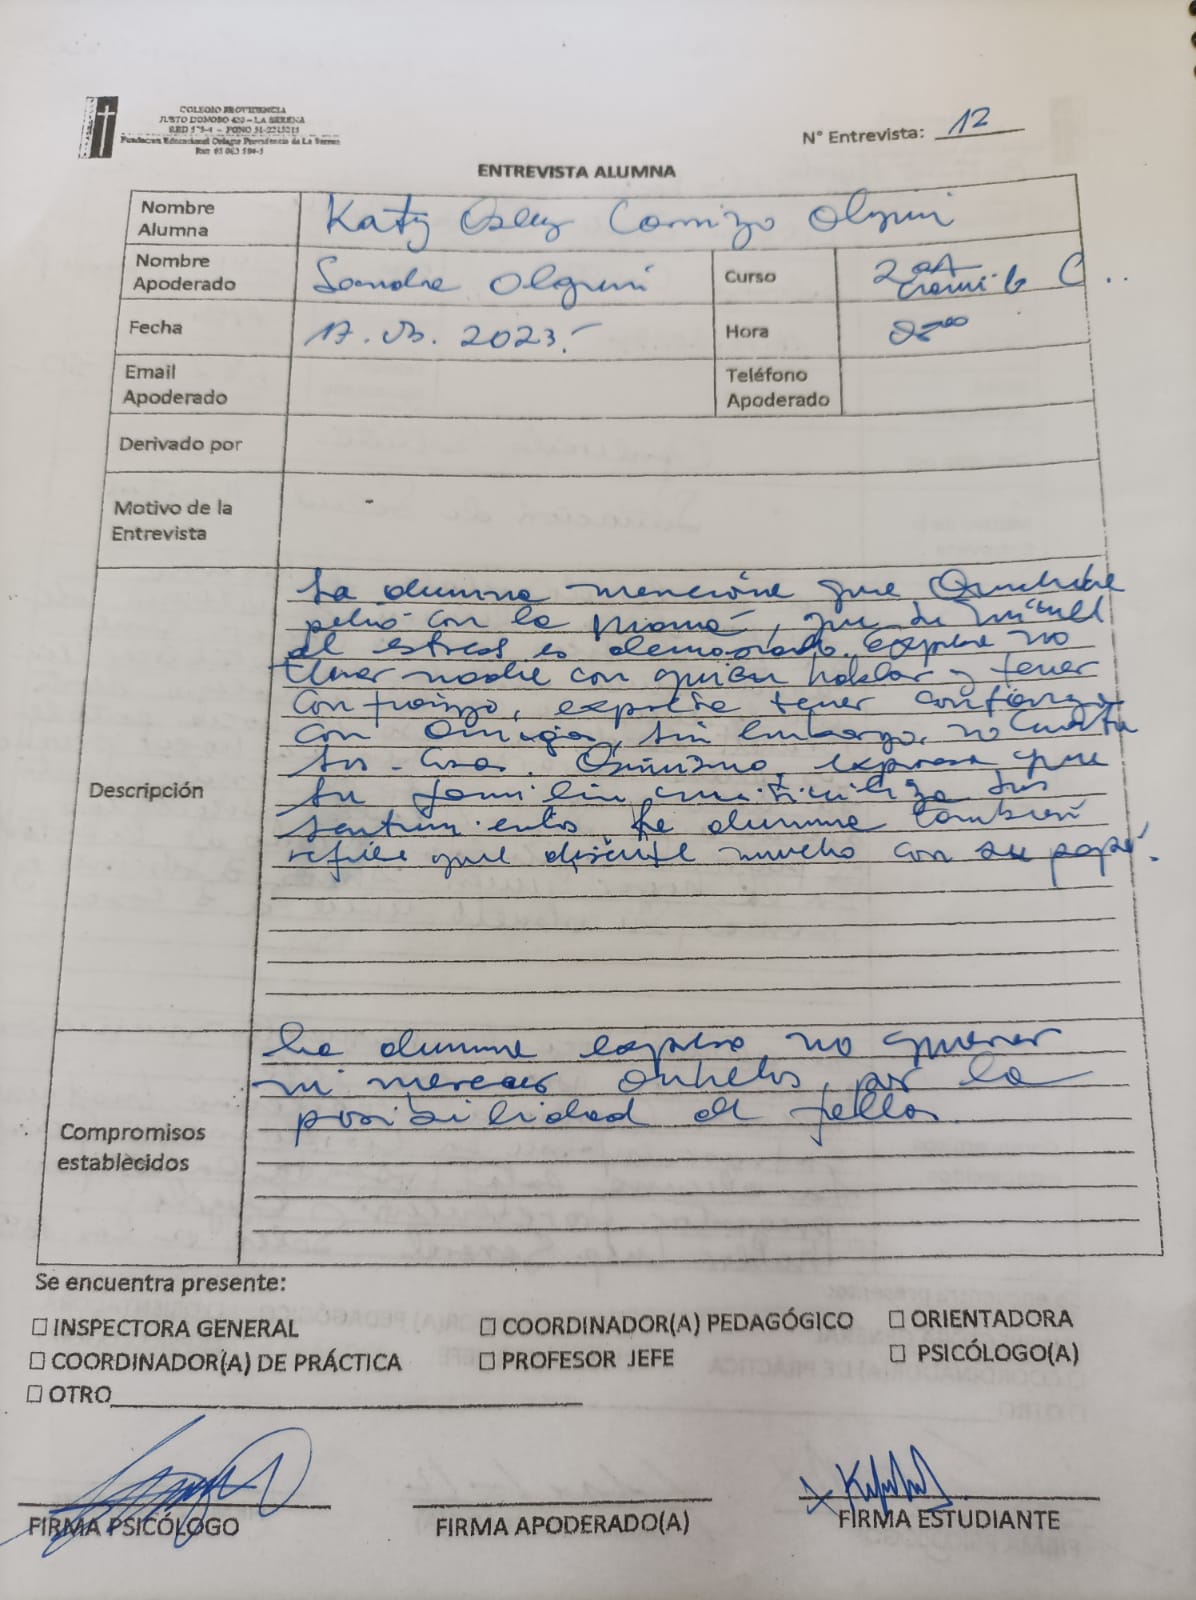 COLEGIO PROVIDENCIA
JUSTO DONOSO 420 – LA SERENA
Fundacion Educacional Colegio Providencia de La Serena
N° Entrevista: 12
ENTREVISTA ALUMNA
Nombre Alumna Katy Olguin
Nombre Apoderado Sandra Olguin Curso 2°A
Fecha 17.03.2023.- Hora
Email Apoderado Teléfono Apoderado
Derivado por
Motivo de la Entrevista -
Descripción
La alumna menciona que
peleó con la Mamá, que su
el estres es demasiado. Expresa no
tener nadie con quien hablar y tener
confianza, expresa tener confianza
con amigas, sin embargo, no cuenta
sus cosas. Asimismo, expresa que
su familia sus
sentimientos. La alumna también
refiere que discute mucho con su papá.
Compromisos establecidos
La alumna expresa no querer
ni merecer anhelos, por la
posibilidad de fallar.
Se encuentra presente:
☐ INSPECTORA GENERAL ☐ COORDINADOR(A) PEDAGÓGICO ☐ ORIENTADORA
☐ COORDINADOR(A) DE PRÁCTICA ☐ PROFESOR JEFE ☐ PSICÓLOGO(A)
☐ OTRO
FIRMA PSICÓLOGO FIRMA APODERADO(A) FIRMA ESTUDIANTE